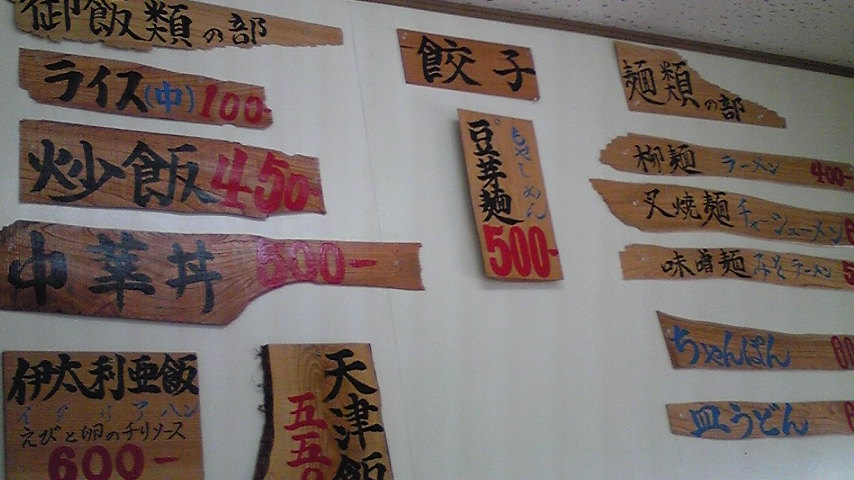 御飯類の部
ライス(中)100-
炒飯450-
中華丼500-
伊太利亜飯
イタリアハン
えびと卵のチリソース
600-
天津飯
五五〇
餃子
豆芽麺
もやしめん
500-
麺類の部
柳麺 ラーメン 400-
叉焼麺 チャーシューメン 6
味噌麺 みそラーメン 5
ちゃんぽん 60
皿うどん 6